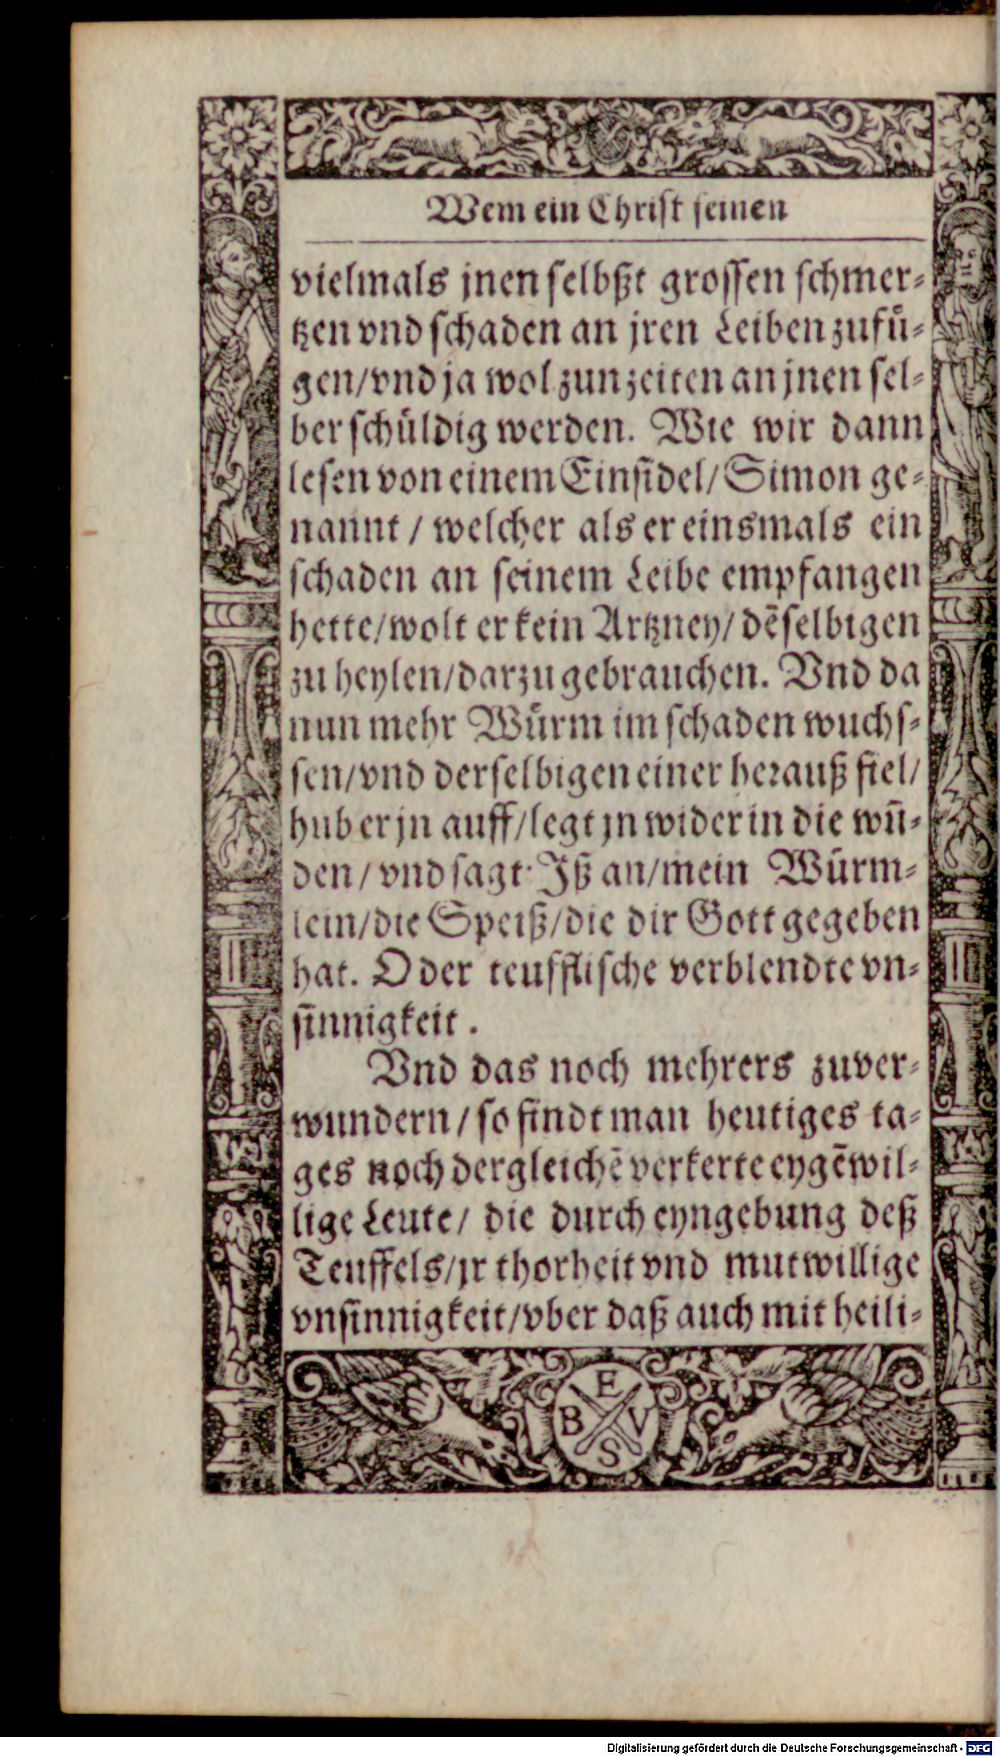 Wem ein Christ seinen
vielmals jnen selbßt grossen schmer-
tzen vnd schaden an jren Leiben zufuͤ-
gen/vnd ja wol zunzeiten an jnen sel-
ber schuͤldig werden. Wie wir dann
lesen von einem Einsidel/Simon ge-
nannt / welcher als er einsmals ein
schaden an seinem Leibe empfangen
hette/wolt er kein Artzney/dẽselbigen
zu heylen/darzu gebrauchen. Vnd da
nun mehr Wuͤrm im schaden wuchs-
sen/vnd derselbigen einer herauß fiel/
hub er jn auff/legt jn wider in die wũ-
den/vnd sagt: Iß an/mein Wuͤrm-
lein/die Speiß/die dir Gott gegeben
hat. O der teufflische verblendte vn-
sinnigkeit.
Vnd das noch mehrers zuver-
wundern/so findt man heutiges ta-
ges noch dergleichẽ verkerte eygẽwil-
lige Leute/ die durch eyngebung deß
Teuffels/jr thorheit vnd mutwillige
vnsinnigkeit/vber daß auch mit heili-
E
B V
S
Digitalisierung gefördert durch die Deutsche Forschungsgemeinschaft - DFG